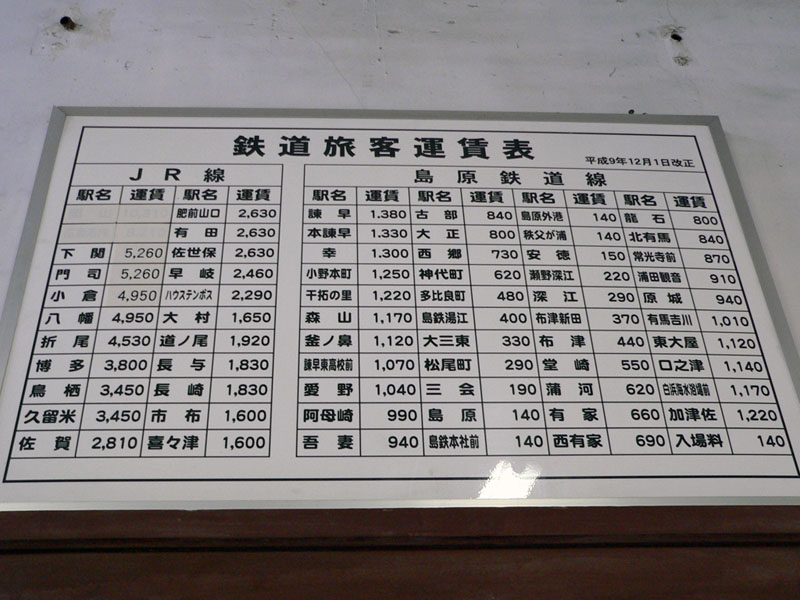 鉄道旅客運賃表
平成9年12月1日改正
JR線 島原鉄道線
駅名 運賃 駅名 運賃 駅名 運賃 駅名 運賃 駅名 運賃 駅名 運賃
肥前山口 2,630 諫早 1.380 古部 840 島原外港 140 龍石 800
有田 2,630 本諫早 1.330 大正 800 秩父が浦 140 北有馬 840
下関 5,260 佐世保 2,630 幸 1.300 西郷 730 安徳 150 常光寺前 870
門司 5,260 早岐 2,460 小野本町 1,250 神代町 620 瀬野深江 220 浦田観音 910
小倉 4,950 ハウステンボス 2,290 干拓の里 1,220 多比良町 480 深江 290 原城 940
八幡 4,950 大村 1,650 森山 1,170 島鉄湯江 400 布津新田 370 有馬吉川 1,010
折尾 4,530 道ノ尾 1,920 釜ノ鼻 1,120 大三東 330 布津 440 東大屋 1,120
博多 3,800 長与 1,830 諫早東高校前 1,070 松尾町 290 堂崎 550 口之津 1,140
鳥栖 3,450 長崎 1,830 愛野 1,040 三会 190 蒲河 620 白浜海水浴場前 1,170
久留米 3,450 市布 1,600 阿母崎 990 島原 140 有家 660 加津佐 1,220
佐賀 2,810 喜々津 1,600 吾妻 940 島鉄本社前 140 西有家 690 入場料 140